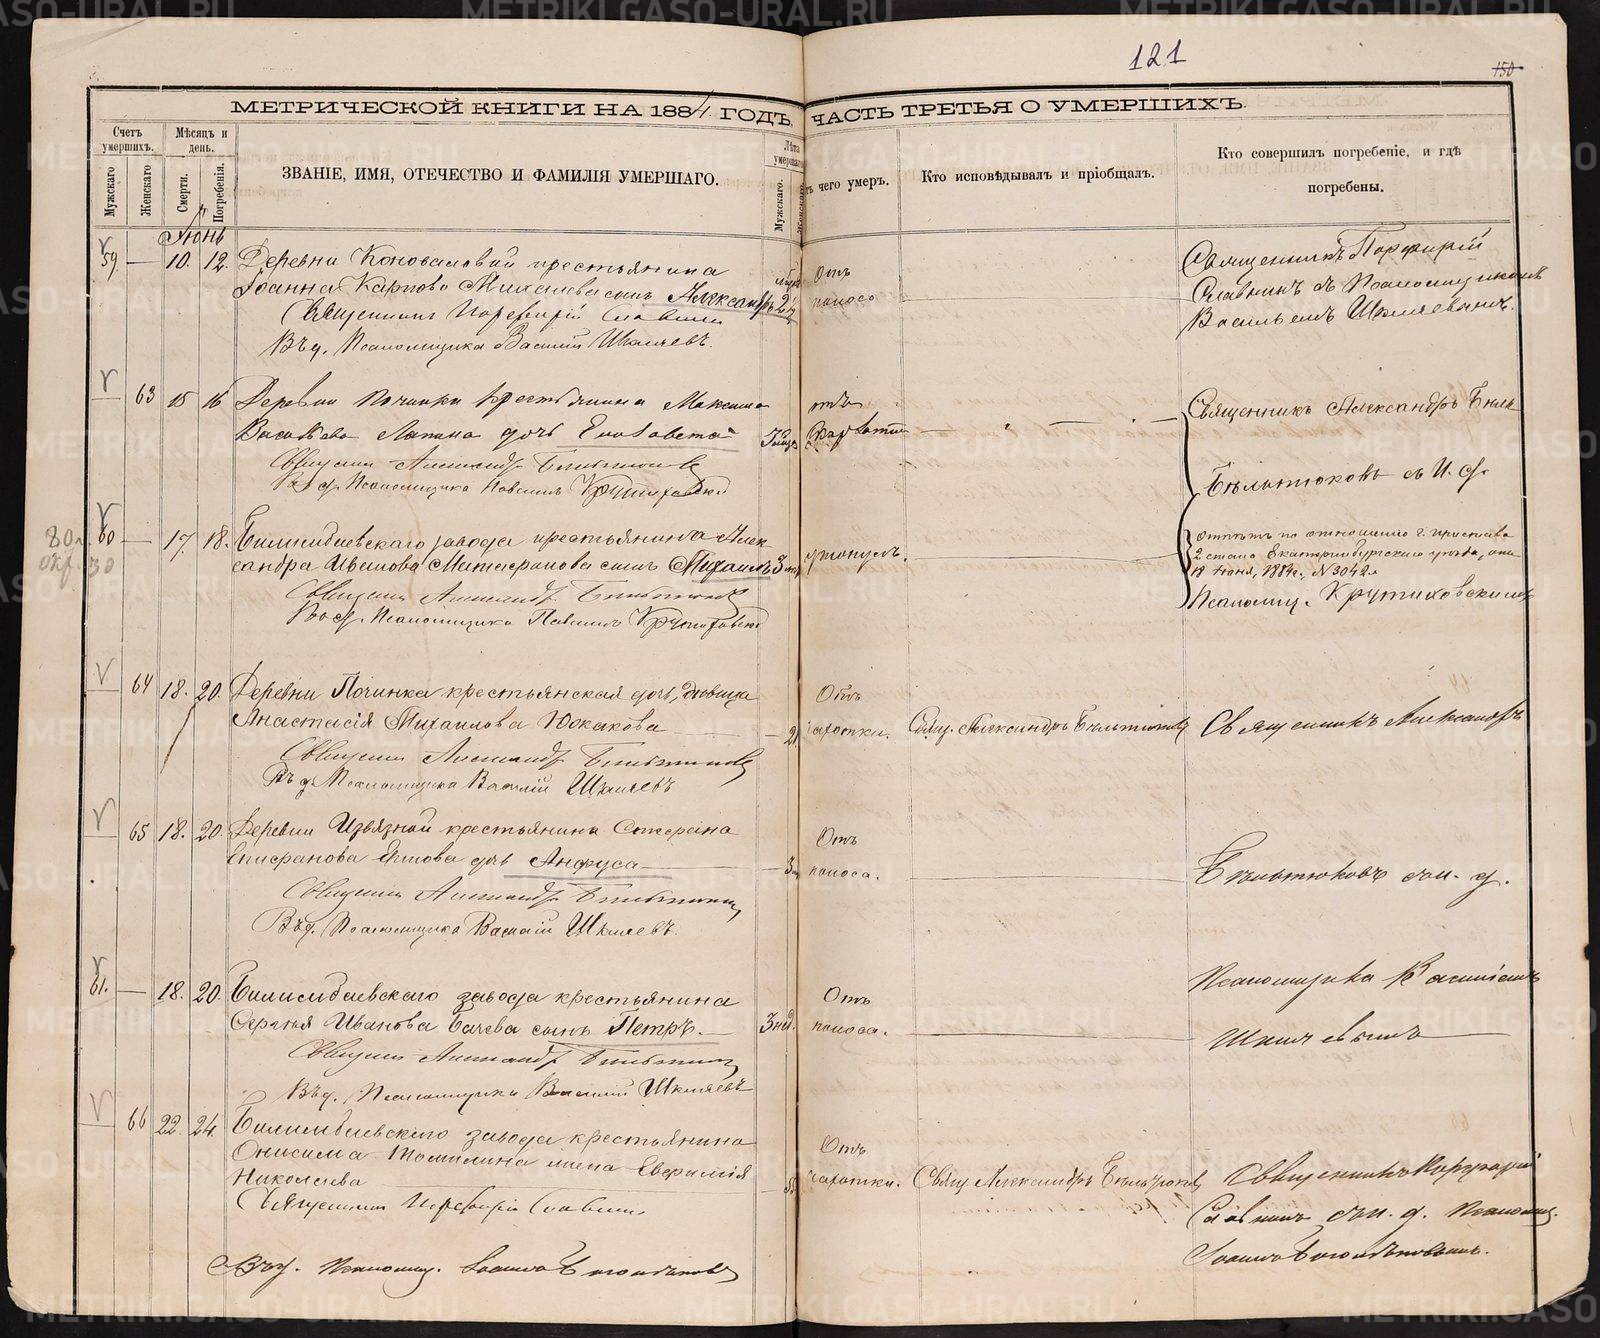 121
150
МЕТРИЧЕСКОЙ КНИГИ НА 1884 ГОДЪ, ЧАСТЬ ТРЕТЬЯ О УМЕРШИХЪ.
Счетъ умершихъ.
Мѣсяцъ и день.
Мужскаго
Женскаго
Смерти.
Погребенія.
ЗВАНІЕ, ИМЯ, ОТЕЧЕСТВО И ФАМИЛІЯ УМЕРШАГО.
Лѣта умершаго
Мужскаго.
Женскаго
чего умеръ.
Кто исповѣдывалъ и пріобщалъ.
Кто совершилъ погребеніе, и гдѣ погребены.
Іюнь
59 — 10. 12. Деревни Коноваловой крестьянина
Іоанна Карпова Михалева сынъ Александръ
Священникъ Порфирій Славнинъ
В. д. Псаломщика Василій Шкляевъ.
Отъ поноса
Священникъ Порфирій
Славнинъ съ Псаломщикомъ
Васильемъ Шкляевымъ.
63 15 16 Деревни Починки крестьянина Максима
Васильева Лапина дочь Елизавета
Священникъ Александръ Бѣльтюковъ
И. д. Псаломщика Павелъ Крутиховскій
отъ
Священникъ Александръ Бѣль
Бѣльтюковъ съ И. д.
80 л.
окр. 30
60 — 17. 18. Билимбаевскаго завода крестьянина Алек
сандра Иванова Митрофанова сынъ Михаилъ 3
Священникъ Александръ Бѣльтюковъ
И. д. Псаломщика Павелъ Крутиховскій
утонулъ.
Отпѣтъ по отношенію г. пристава
2 стана Екатеринбургскаго уѣзда, отъ
18 Іюня, 1884 г. № 3042
Псаломщ. Крутиховскимъ
64 18. 20. Деревни Починка крестьянская дочь, дѣвица
Анастасія Михаилова Южакова — 21
Священникъ Александръ Бѣльтюковъ
В. д. Псаломщика Василій Шкляевъ
Отъ чахотки.
Свящ. Александръ Бѣльтюковъ
Священникъ Александръ
65 18. 20. Деревни Извязной крестьянина Стефана
Епифанова дочь Анфуса — 3
Священникъ Александръ Бѣльтюковъ
В. д. Псаломщика Василій Шкляевъ.
Отъ поноса.
Бѣльтюковъ съ и. д.
61. — 18. 20. Билимбаевскаго завода крестьянина
Сергѣя Иванова Бачева сынъ Петръ. — 3 нед.
Священникъ Александръ Бѣльтюковъ
В. д. Псаломщика Василій Шкляевъ
Отъ поноса.
Псаломщика Василіемъ
Шкляевымъ
66 22. 24. Билимбаевскаго завода крестьянина
Онисима Томилина жена Евфимія
Николаева
Священникъ Порфирій Славнинъ
В. д. Псаломщ. Іоаннъ
Отъ чахотки.
Свящ. Александръ Бѣльтюковъ
Священникъ Порфирій
Славнинъ съ и. д. Псаломщ.